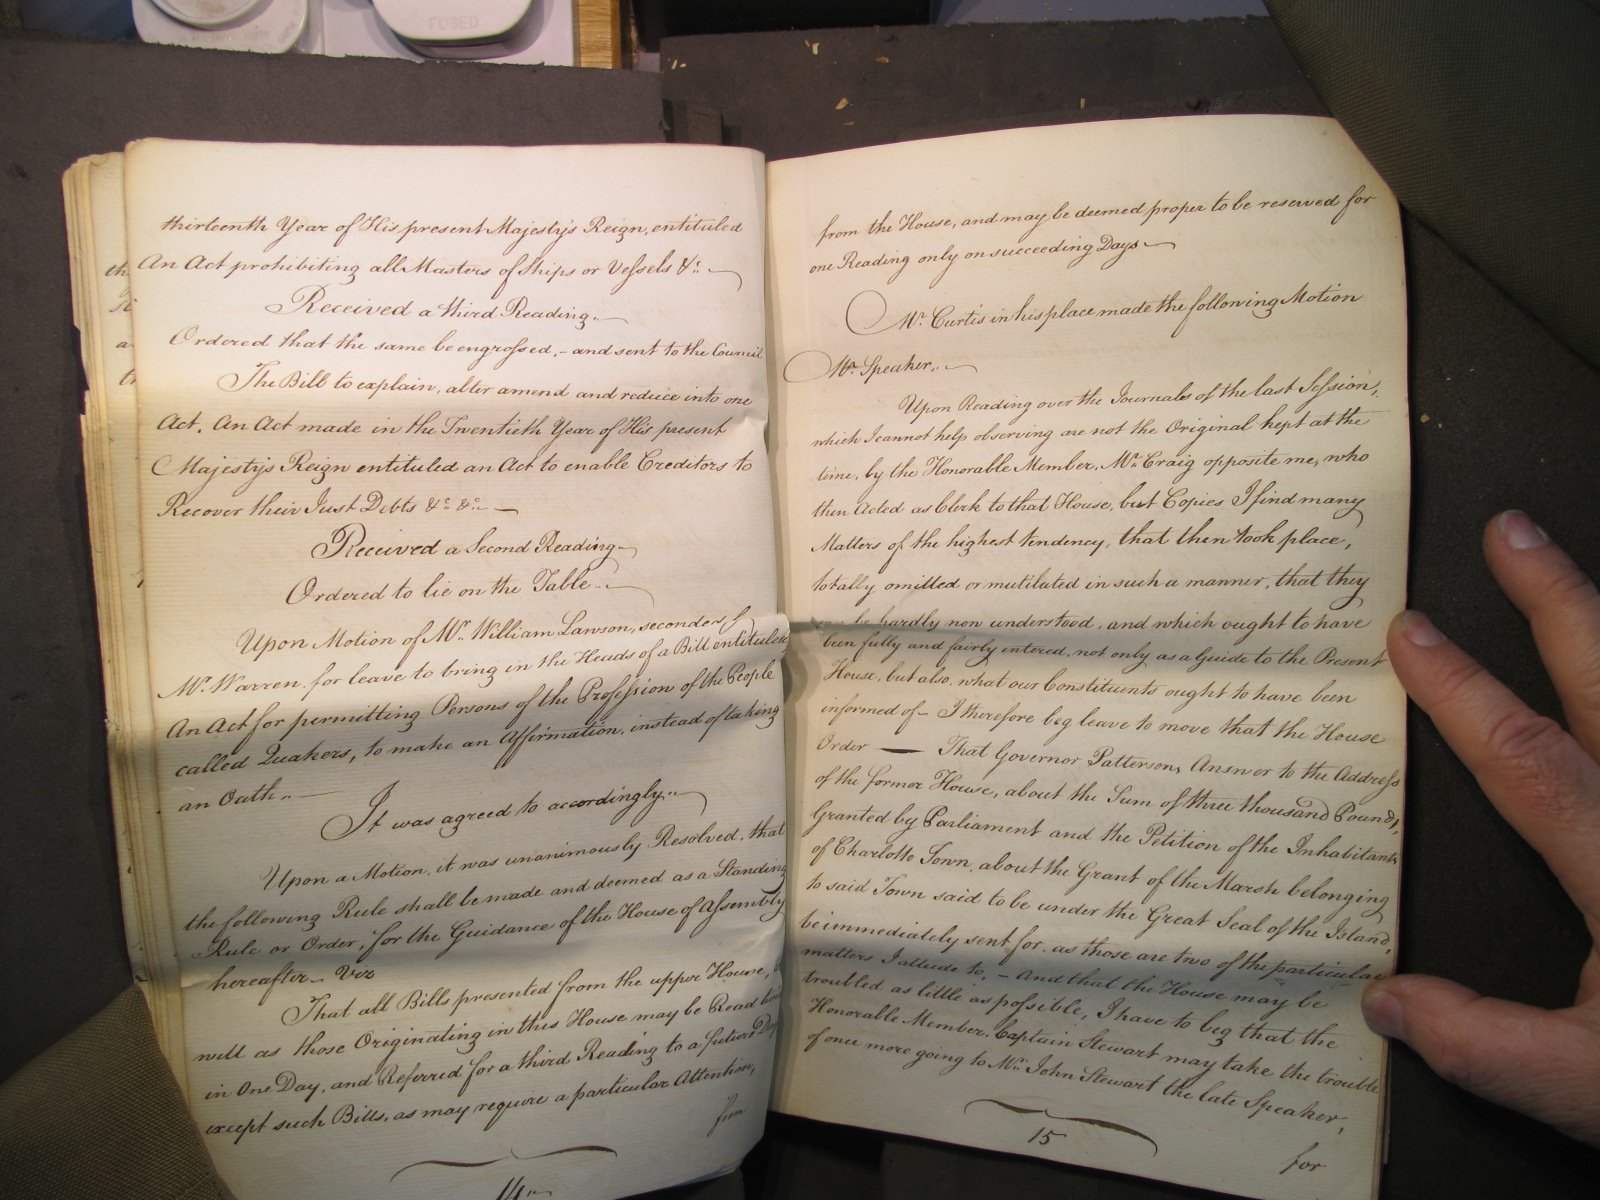 FUSED
thirteenth Year of His present Majesty's Reign, entituled
An Act prohibiting all Masters of Ships or Vessels &c.
Received a third Reading.
Ordered that the same be engrossed, - and sent to the Council
The Bill to explain, alter amend and reduce into one
Act, An Act made in the Twentieth Year of His present
Majesty's Reign entituled an Act to enable Creditors to
Recover their Just Debts &c. &c.
Received a Second Reading
Ordered to lie on the Table
Upon Motion of Mr. William Lawson, seconded
Mr. Warren for leave to bring in the Heads of a Bill entituled
An Act for permitting Persons of the Profession of the People
called Quakers, to make an Affirmation, instead of taking
an Oath.
It was agreed to accordingly.
Upon a Motion, it was unanimously Resolved, that
the following Rule shall be made and deemed as a Standing
Rule or Order, for the Guidance of the House of Assembly
hereafter - Viz
That all Bills presented from the upper House,
well as those Originating in this House may be Read
in One Day, and Referred for a third Reading to a future Day
except such Bills, as may require a particular Attention,
from
14
from the House, and may be deemed proper to be reserved for
one Reading only on succeeding Days
Mr. Curtis in his place made the following Motion
Mr. Speaker,
Upon Reading over the Journals of the last Session,
which I cannot help observing are not the Original kept at the
time, by the Honorable Member, Mr. Craig opposite me, who
then Acted as Clerk to that House, but Copies I find many
Matters of the highest tendency, that then took place,
totally omitted or mutilated in such a manner, that they
be hardly now understood, and which ought to have
been fully and fairly entered, not only as a Guide to the Present
House, but also, what our Constituents ought to have been
informed of - I therefore beg leave to move that the House
Order — That Governor Patterson, Answer to the Address
of the former House, about the Sum of three thousand Pounds,
Granted by Parliament and the Petition of the Inhabitants
of Charlotte Town, about the Grant of the Marsh belonging
to said Town said to be under the Great Seal of the Island,
be immediately sent for, as those are two of the particular
matters I allude to, - And that the House may be
troubled as little as possible, I have to beg that the
Honorable Member, Captain Stewart may take the trouble
of once more going to Mr. John Stewart the late Speaker,
15
for